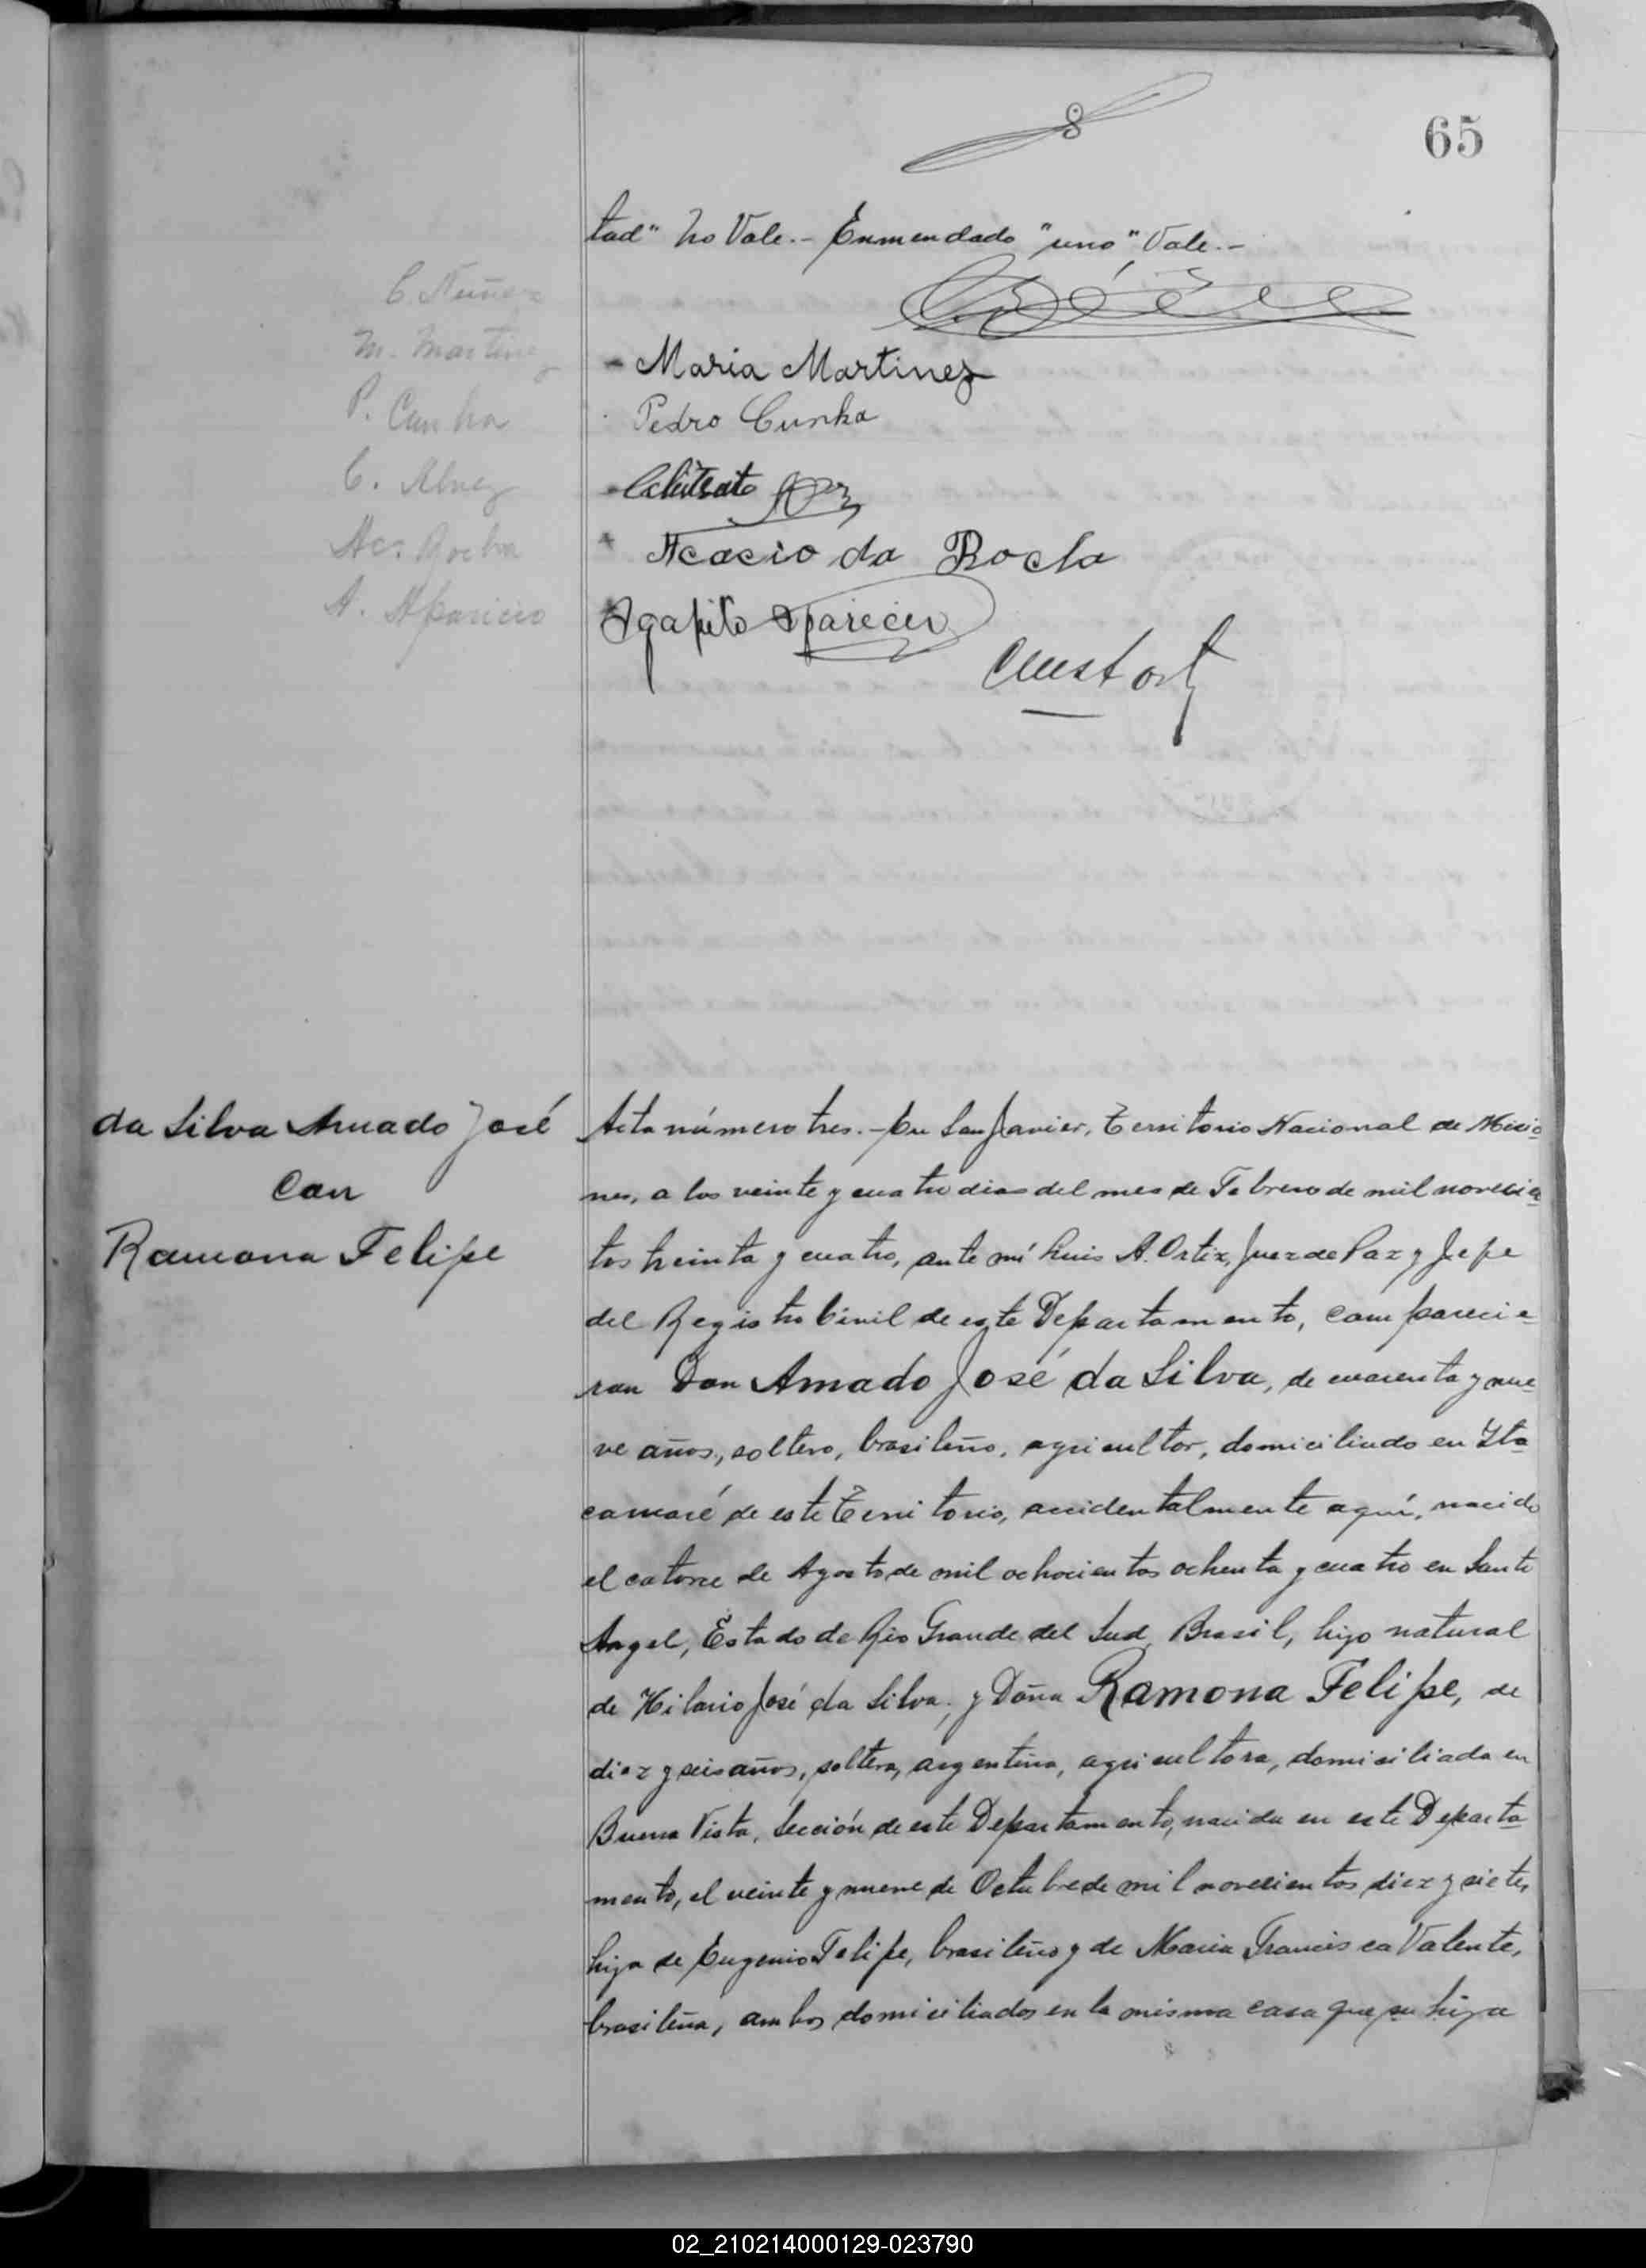 65
tad" No Vale.- Enmendado "uno" Vale.-
C. Núñez
M. Martinez
- Maria Martinez
P. Cunha
Pedro Cunha
C.
Ac. Rocha
Acacio da Rocha
A. Aparicio
Agapito Aparicio
da Silva Amado José
con
Ramona Felipe
Acta número tres.- En San Javier, Territorio Nacional de Misio
nes, a los veinte y cuatro dias del mes de Febrero de mil novecien
tos treinta y cuatro, ante mí Luis A. Ortiz, Juez de Paz y Jefe
del Registro Civil de este Departamento, comparecie-
ron Don Amado José da Silva, de cuarenta y nue
ve años, soltero, brasileño, agricultor, domiciliado en Ita
caruaré de este Territorio, accidentalmente aquí, nacido
el catorce de Agosto de mil ochocientos ochenta y cuatro en Santo
Angel, Estado de Rio Grande del Sud, Brasil, hijo natural
de Hilario José da Silva; y Doña Ramona Felipe, de
diez y seis años, soltera, argentina, agricultora, domiciliada en
Buena Vista, Sección de este Departamento, nacida en este Departa
mento, el veinte y nueve de Octubre de mil novecientos diez y siete,
hija de Eugenio Felipe, brasileño y de Maria Francisca Valente,
brasileña, ambos domiciliados en la misma casa que su hija
02_210214000129-023790